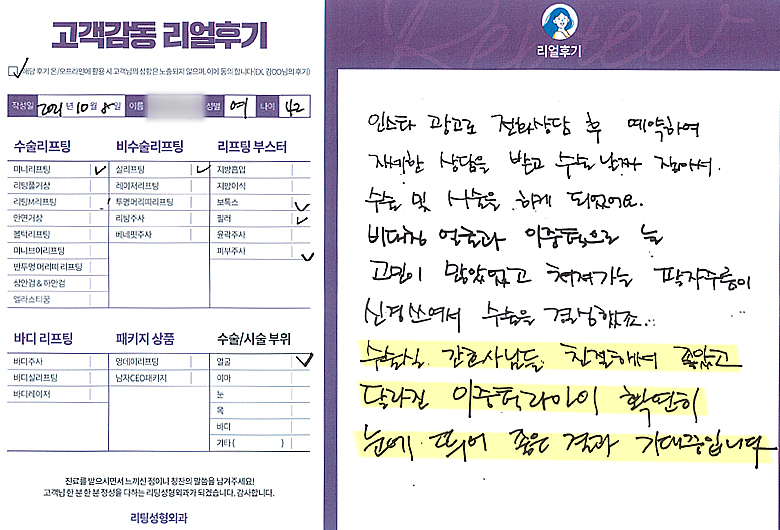 고객감동 리얼후기
해당 후기 온/오프라인에 활용 시 고객님의 성함은 노출되지 않으며, 이에 동의합니다(EX. 김OO님의 후기)
작성일 2021년 10월 8일 이름 성별 여 나이 42
수술리프팅
미니리프팅
리팅풀거상
리팅M리프팅
안면거상
볼턱리프팅
미니브이리프팅
반투명 머리띠 리프팅
상안검 & 하안검
엘라스티꿈
비수술리프팅
실리프팅
레이저리프팅
투명머리띠리프팅
리팅주사
베네핏주사
리프팅 부스터
지방흡입
지방이식
보톡스
필러
윤곽주사
피부주사
바디 리프팅
바디주사
바디실리프팅
바디레이저
패키지 상품
엉데이리프팅
남자CEO패키지
수술/시술 부위
얼굴
이마
눈
목
바디
기타 ( )
진료를 받으시면서 느끼신 점이나 칭찬의 말씀을 남겨주세요!
고객님 한 분 한 분 정성을 다하는 리팅성형외과가 되겠습니다. 감사합니다.
리팅성형외과
Review
리얼후기
인스타 광고로 전화상담 후 예약하여
자세한 상담을 받고 수술날짜 잡아서.
수술 및 시술을 하게 되었어요.
비대칭 얼굴과 이중턱으로 늘
고민이 많았었고 쳐져가는 팔자주름이
신경쓰여서 수술을 결정했죠..
수술실 간호사님들 친절해서 좋았고
달라진 이중턱라인이 확연히
눈에 띄어 좋은 결과 기대중입니다